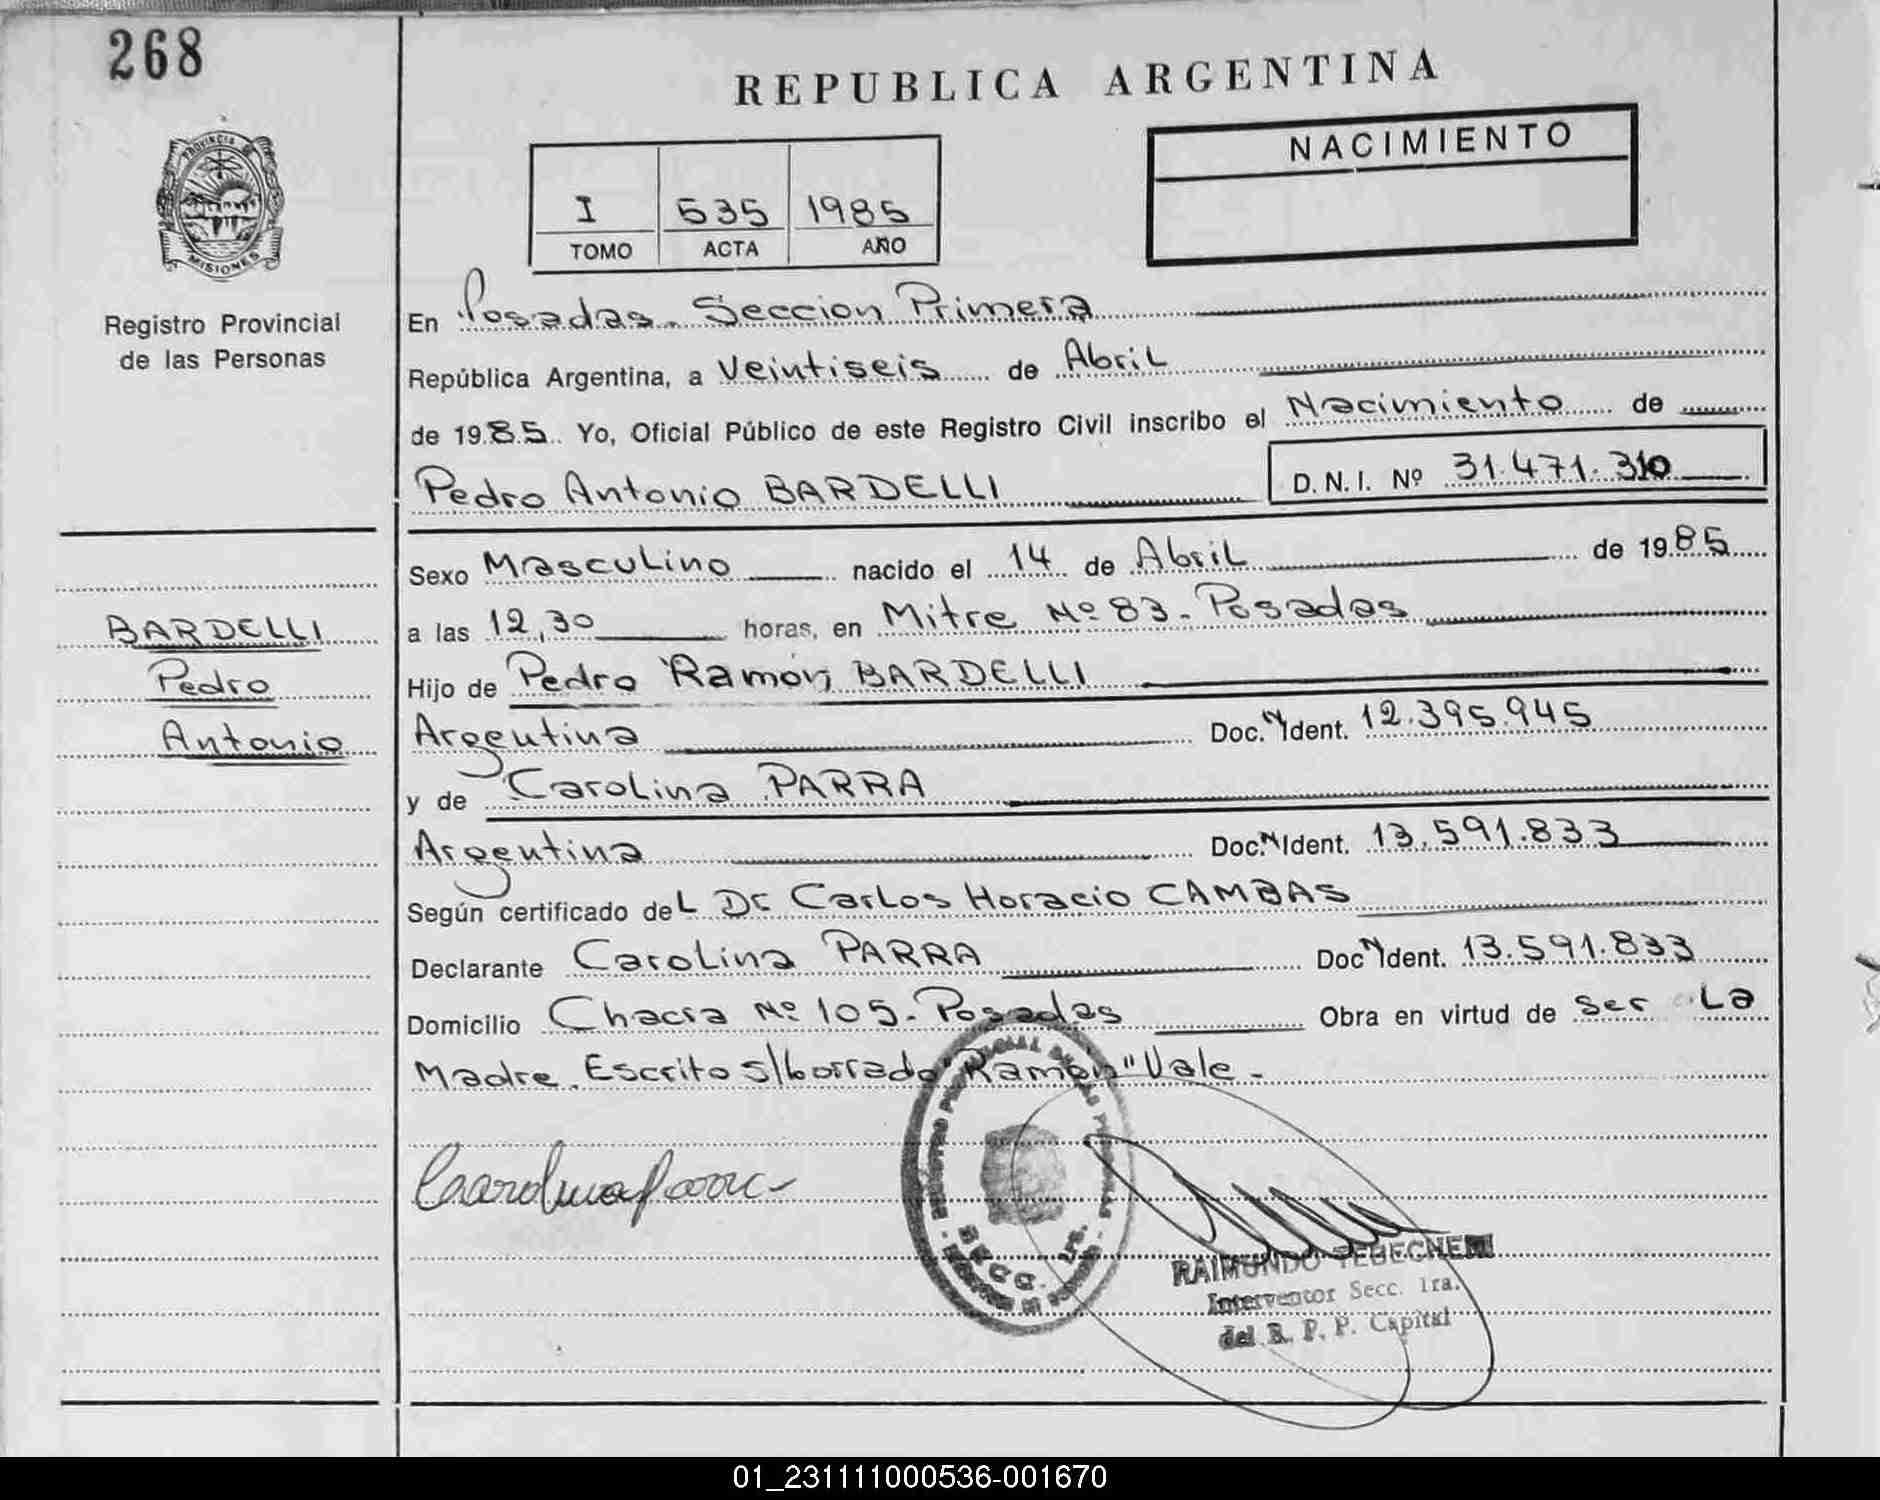 268
REPUBLICA ARGENTINA
PROVINCIA DE
MISIONES
Registro Provincial
de las Personas
NACIMIENTO
I 535 1985
TOMO ACTA AÑO
En Posadas. Seccion Primera
República Argentina, a Veintiseis de Abril
de 1985. Yo, Oficial Público de este Registro Civil inscribo el Nacimiento de
Pedro Antonio BARDELLI D.N.I. Nº 31.471.310
Sexo Masculino nacido el 14 de Abril de 1985
a las 12,30 horas, en Mitre Nº 83. Posadas
Hijo de Pedro Ramón BARDELLI
Argentina Doc. N Ident. 12.395.945
y de Carolina PARRA
Argentina Doc. N Ident. 13.591.833
Según certificado del Dr Carlos Horacio CAMBAS
Declarante Carolina PARRA Doc N Ident. 13.591.833
Domicilio Chacra Nº 105. Posadas Obra en virtud de Ser La
Madre. Escrito s/borrado "Ramón" Vale.-
BARDELLI
Pedro
Antonio
SECC. 1ra.
RAIMUNDO
Interventor Secc. 1ra.
del R. P. P. Capital
01_231111000536-001670